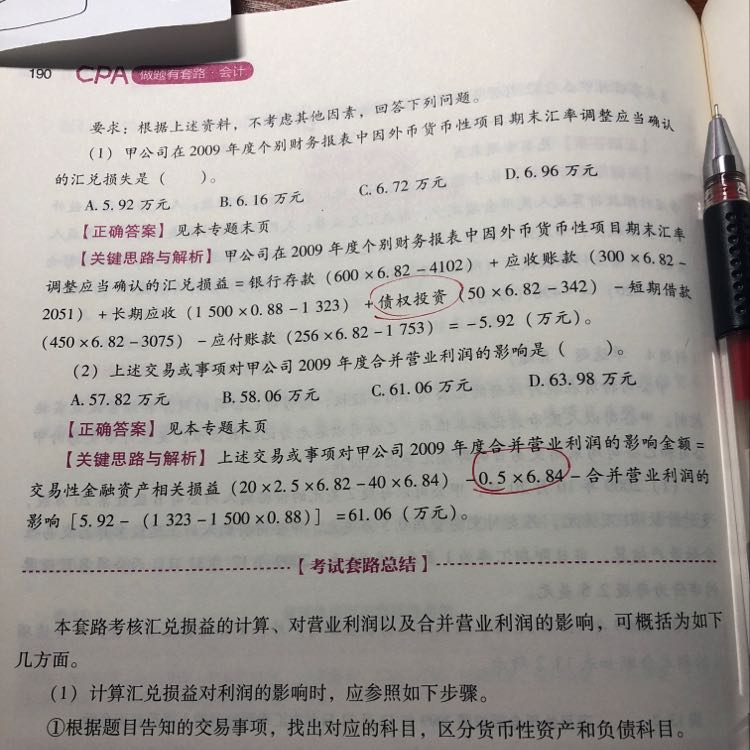 190 CPA 做题有套路·会计
要求：根据上述资料，不考虑其他因素，回答下列问题。
（1）甲公司在 2009 年度个别财务报表中因外币货币性项目期末汇率调整应当确认
的汇兑损失是（ ）。
A. 5. 92 万元 B. 6. 16 万元 C. 6. 72 万元 D. 6. 96 万元
【正确答案】见本专题末页
【关键思路与解析】甲公司在 2009 年度个别财务报表中因外币货币性项目期末汇率
调整应当确认的汇兑损益＝银行存款（600×6. 82－4102）＋应收账款（300×6. 82－
2051）＋长期应收（1 500×0. 88－1 323）＋债权投资（50×6. 82－342）－短期借款
（450×6. 82－3075）－应付账款（256×6. 82－1 753）＝－5. 92（万元）。
（2）上述交易或事项对甲公司 2009 年度合并营业利润的影响是（ ）。
A. 57. 82 万元 B. 58. 06 万元 C. 61. 06 万元 D. 63. 98 万元
【正确答案】见本专题末页
【关键思路与解析】上述交易或事项对甲公司 2009 年度合并营业利润的影响金额＝
交易性金融资产相关损益（20×2. 5×6. 82－40×6. 84）－0. 5×6. 84－合并营业利润的
影响［5. 92－（1 323－1 500×0. 88）］＝61. 06（万元）。
【考试套路总结】
本套路考核汇兑损益的计算、对营业利润以及合并营业利润的影响，可概括为如下
几方面。
（1）计算汇兑损益对利润的影响时，应参照如下步骤。
①根据题目告知的交易事项，找出对应的科目，区分货币性资产和负债科目。